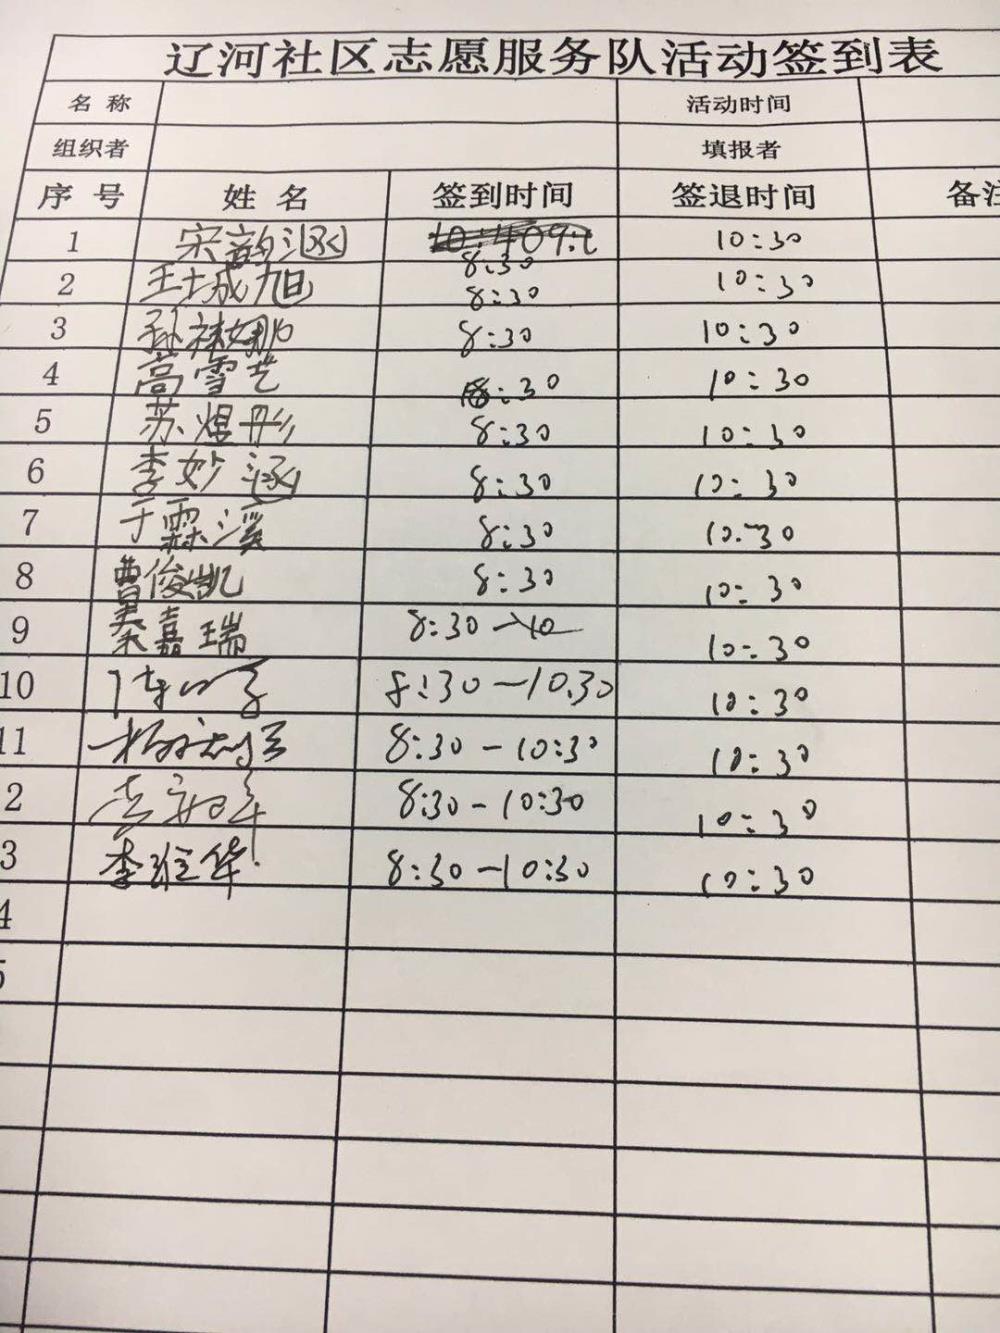 辽河社区志愿服务队活动签到表
名称 活动时间
组织者 填报者
序号 姓名 签到时间 签退时间 备注
1 宋韵涵 8:30 10:30
2 王士成旭 8:30 10:30
3 孙禄娜 8:30 10:30
4 高雪艺 8:30 10:30
5 苏煜彤 8:30 10:30
6 李妙涵 8:30 10:30
7 于霖溪 8:30 10:30
8 曹俊凯 8:30 10:30
9 秦嘉瑞 8:30 10:30
10 8:30-10:30 10:30
11 8:30-10:30 10:30
2 8:30-10:30 10:30
3 李维华 8:30-10:30 10:30
4
5